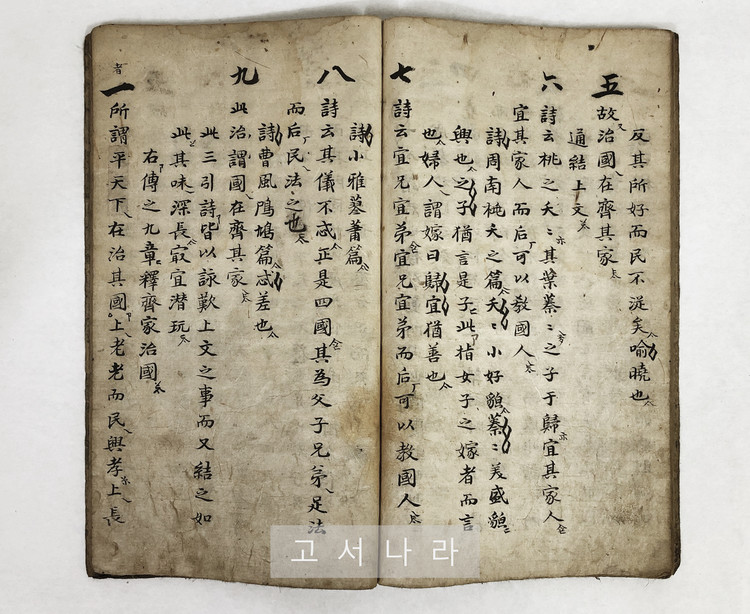 反其所好而民不從矣喻曉也
五
故治國在齊其家
通結上文
六
詩云桃之夭夭其葉蓁〻之子于歸宜其家人
宜其家人而后可以敎國人
詩周南桃夭之篇夭〻小好貌蓁〻美盛貌
興也之子猶言是子此指女子之嫁者而言
也婦人謂嫁曰歸宜猶善也
七
詩云宜兄宜弟宜兄宜弟而后可以教國人
詩小雅蓼蕭篇
八
詩云其儀不忒正是四國其為父子兄弟足法
而后民法之也
詩曹風鳲鳩篇忒差也
九
此治謂國在齊其家
此三引詩皆以詠歎上文之事而又結之如
此其味深長㝡宜潛玩
右傳之九章釋齊家治國
者
一
所謂平天下在治其國上老老而民興孝上長
고서나라